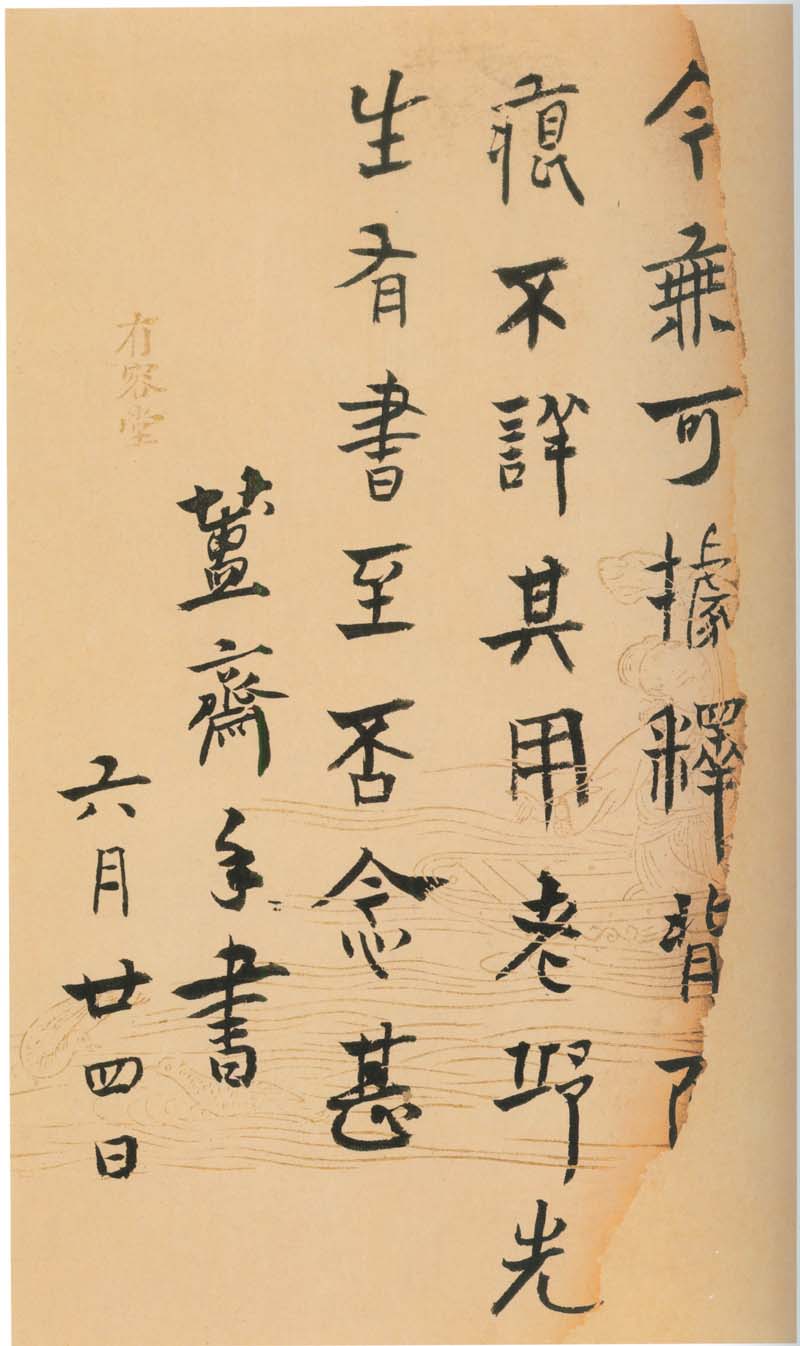 今無可據釋背
痕不詳其用老邱先
生有書至否念甚
簠齋手書
六月廿四日
有容堂